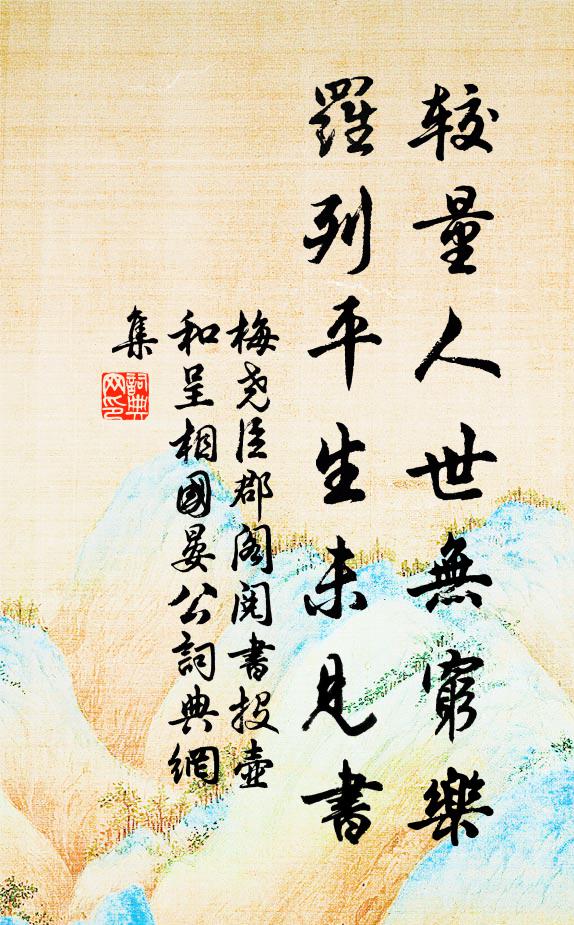 较量人世無窮樂
羅列平生未見書
梅堯臣郡閣閱書投壺
和呈相國晏公詞典網
集
詞典
网印